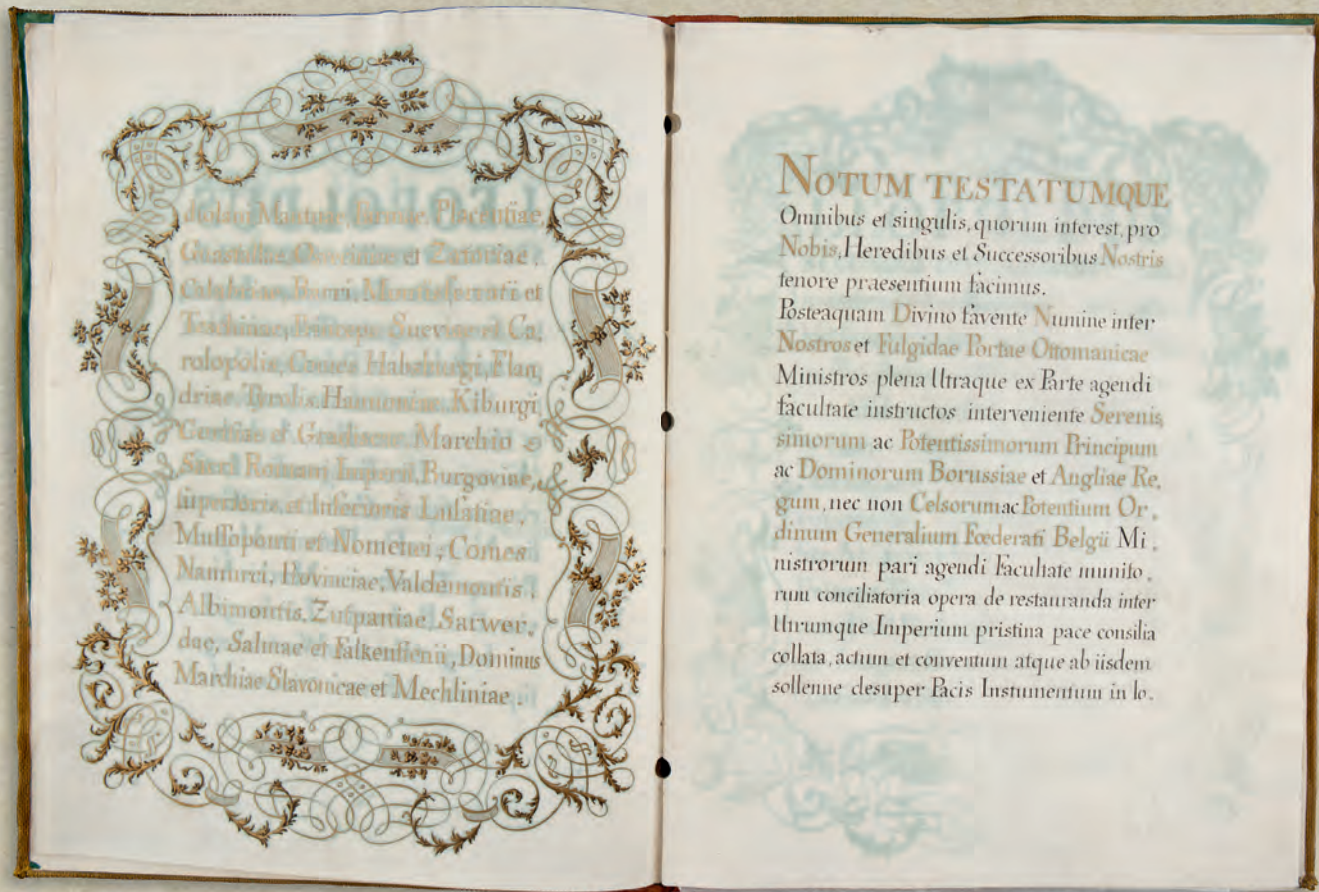 diolani Mantuae, Parmae, Placentiae,
Guastallae, Osveciniae et Zatoriae,
Calabriae, Barri, Montisferrati et
Teschinae, Princeps Sueviae et Ca,
rolopolis, Comes Habspurgi, Flan,
driae, Tyrolis, Hannoniae, Kiburgi,
Goritiae et Gradiscae, Marchio
Sacri Romani Imperii, Burgoviae,
superioris et Inferioris Lusatiae,
Mussoponti et Nomenei, Comes
Namurci, Provinciae, Valdemontis,
Albimontis, Zutpaniae, Sarwer,
dae, Salmae et Falkensteinii, Dominus
Marchiae Slavonicae et Mechliniae.
NOTUM TESTATUMQUE
Omnibus et singulis, quorum interest, pro
Nobis, Heredibus et Successoribus Nostris
tenore praesentium facimus.
Posteaquam Divino favente Numine inter
Nostros et Fulgidae Portae Ottomanicae
Ministros plena Utraque ex Parte agendi
facultate instructos interveniente Serenis,
simorum ac Potentissimorum Principum
ac Dominorum Borussiae et Angliae Re,
gum, nec non Celsorum ac Potentium Or,
dinum Generalium Fœderati Belgii Mi,
nistrorum pari agendi Facultate munito,
rum conciliatoria opera de restauranda inter
Utrumque Imperium pristina pace consilia
collata, actum et conventum atque ab iisdem
sollenne desuper Pacis Instumentum in lo,